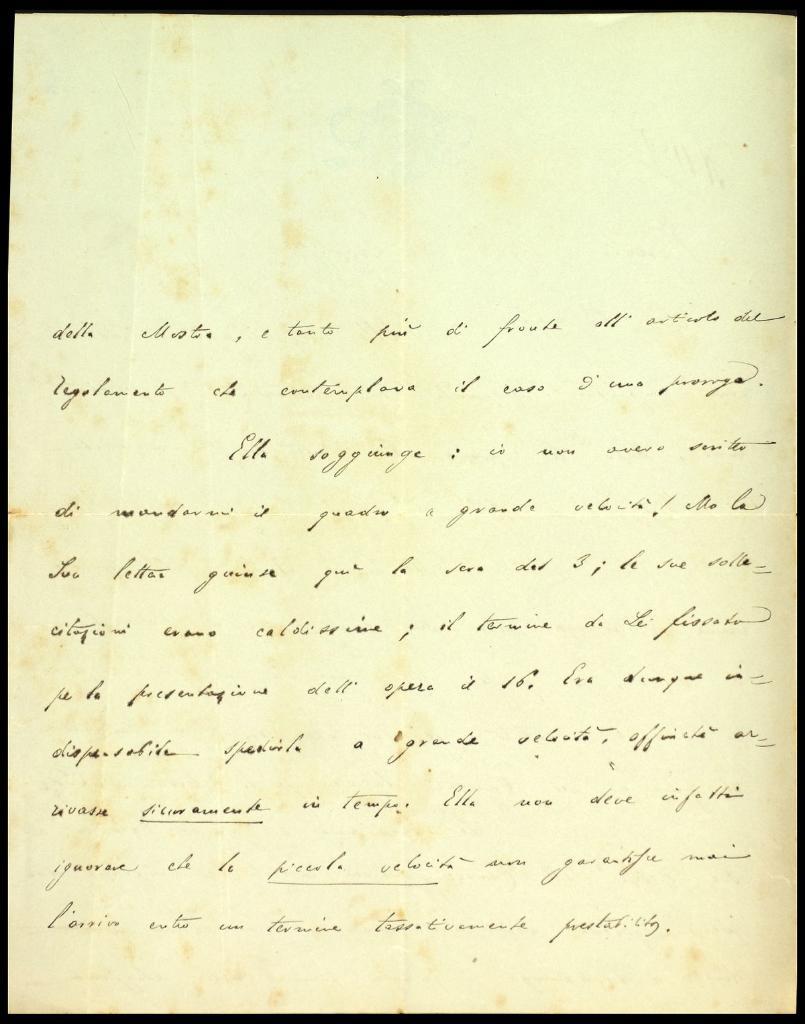 della Mostra, e tanto più di fronte all'articolo del
regolamento che contemplava il caso d'una proroga.
Ella soggiunge: io non avevo scritto
di mandarmi il quadro a grande velocità! Ma la
Sua lettera giunse quì la sera del 3; le sue solle=
citazioni erano caldissime; il termine da Lei fissato
per la presentazione dell'opera il 16. Era dunque in=
dispensabile spedirla a grande velocità, affinchè ar=
rivasse sicuramente in tempo. Ella non deve infatti
ignorare che la piccola velocità non garantisce mai
l'arrivo entro un termine tassativamente prestabilito.